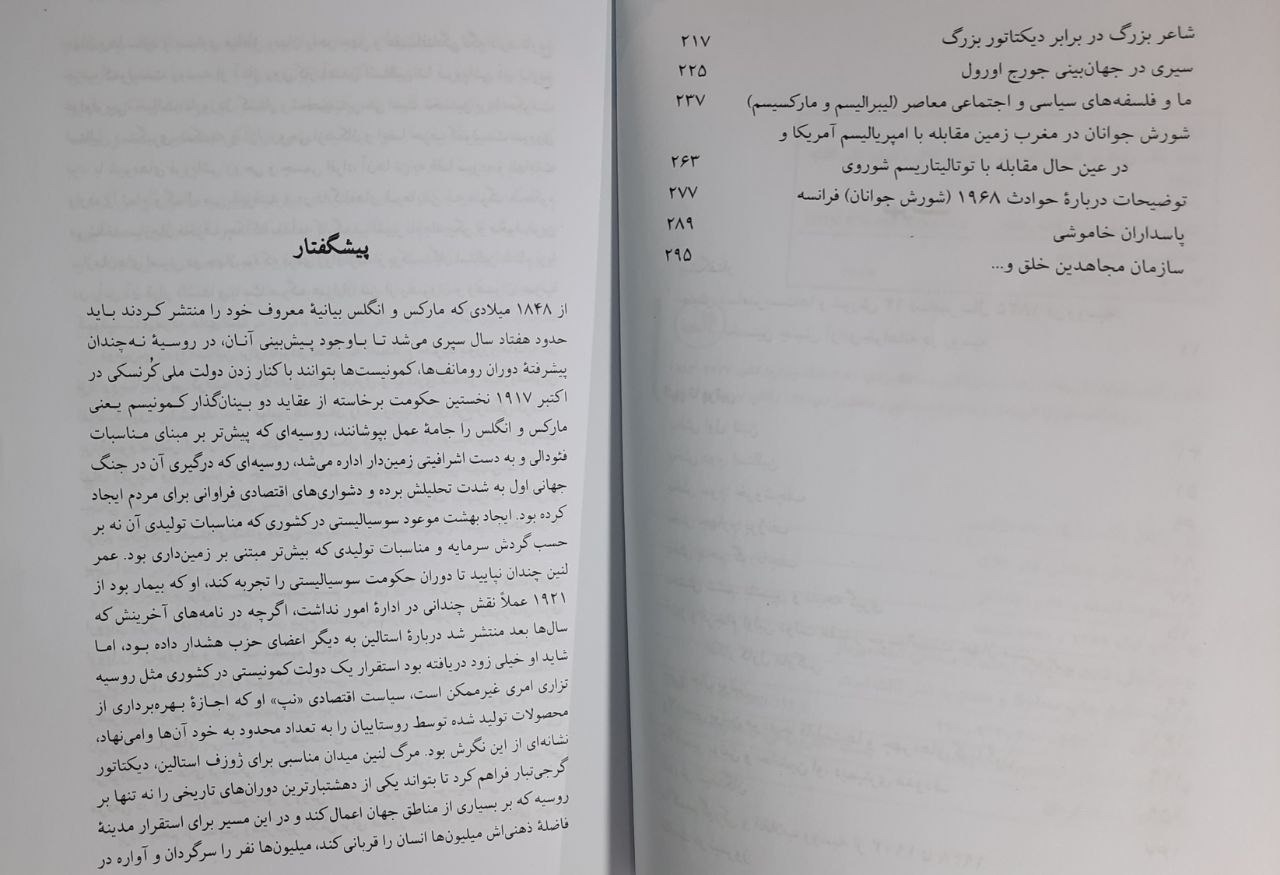 شاعر بزرگ در برابر دیکتاتور بزرگ ۲۱۷
سیری در جهان‌بینی جورج اورول ۲۲۵
ما و فلسفه‌های سیاسی و اجتماعی معاصر (لیبرالیسم و مارکسیسم) ۲۳۷
شورش جوانان در مغرب زمین مقابله با امپریالیسم آمریکا و
در عین حال مقابله با توتالیتاریسم شوروی ۲۶۳
توضیحات دربارهٔ حوادث ۱۹۶۸ (شورش جوانان) فرانسه ۲۷۷
پاسداران خاموشی ۲۸۹
سازمان مجاهدین خلق و... ۲۹۵
پیشگفتار
از ۱۸۴۸ میلادی که مارکس و انگلس بیانیهٔ معروف خود را منتشر کردند باید
حدود هفتاد سال سپری می‌شد تا باوجود پیش‌بینی آنان، در روسیهٔ نه‌چندان
پیشرفتهٔ دوران رومانف‌ها، کمونیست‌ها بتوانند با کنار زدن دولت ملی کُرنسکی در
اکتبر ۱۹۱۷ نخستین حکومت برخاسته از عقاید دو بنیان‌گذار کمونیسم یعنی
مارکس و انگلس را جامهٔ عمل بپوشانند، روسیه‌ای که پیش‌تر بر مبنای مناسبات
فئودالی و به دست اشرافیتی زمین‌دار اداره می‌شد، روسیه‌ای که درگیری آن در جنگ
جهانی اول به شدت تحلیلش برده و دشواری‌های اقتصادی فراوانی برای مردم ایجاد
کرده بود. ایجاد بهشت موعود سوسیالیستی در کشوری که مناسبات تولیدی آن نه بر
حسب گردش سرمایه و مناسبات تولیدی که بیش‌تر مبتنی بر زمین‌داری بود. عمر
لنین چندان نپایید تا دوران حکومت سوسیالیستی را تجربه کند، او که بیمار بود از
۱۹۲۱ عملاً نقش چندانی در ادارهٔ امور نداشت، اگرچه در نامه‌های آخرینش که
سال‌ها بعد منتشر شد دربارهٔ استالین به دیگر اعضای حزب هشدار داده بود، اما
شاید او خیلی زود دریافته بود استقرار یک دولت کمونیستی در کشوری مثل روسیه
تزاری امری غیرممکن است، سیاست اقتصادی «نپ» او که اجازهٔ بهره‌برداری از
محصولات تولید شده توسط روستاییان را به تعداد محدود به خود آن‌ها وامی‌نهاد،
نشانه‌ای از این نگرش بود. مرگ لنین میدان مناسبی برای ژوزف استالین، دیکتاتور
گرجی‌تبار فراهم کرد تا بتواند یکی از دهشتبارترین دوران‌های تاریخی را نه تنها بر
روسیه که بر بسیاری از مناطق جهان اعمال کند و در این مسیر برای استقرار مدینهٔ
فاضلهٔ ذهنی‌اش میلیون‌ها انسان را قربانی کند، میلیون‌ها نفر را سرگردان و آواره در